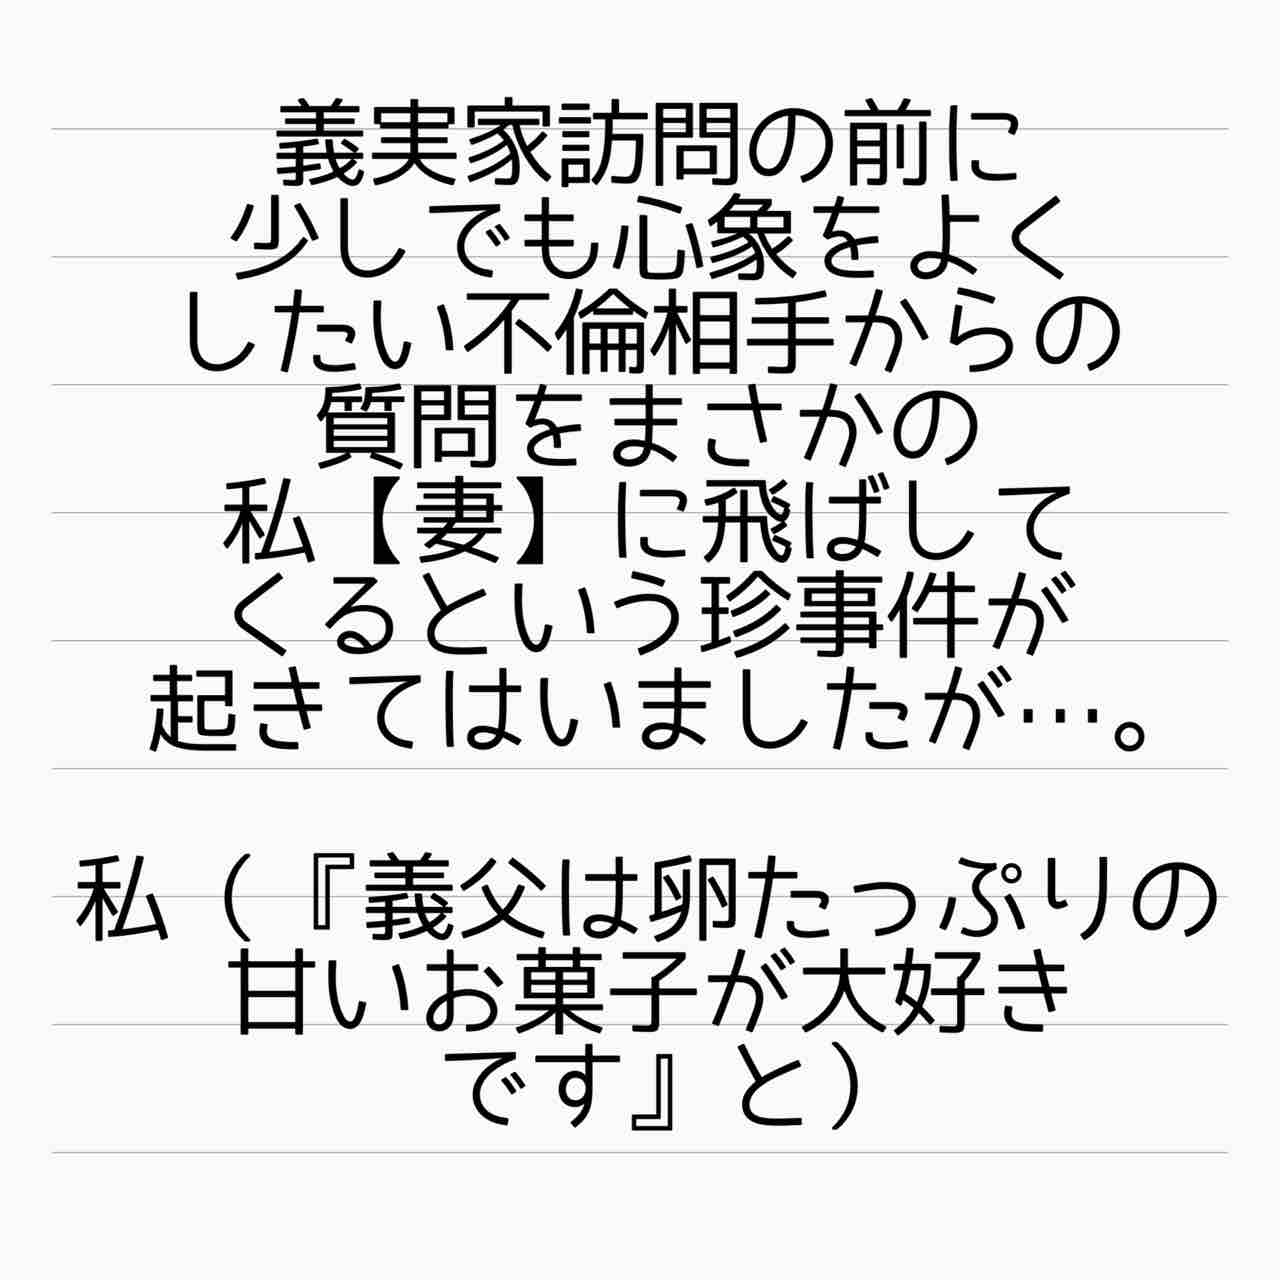 義実家訪問の前に
少しでも心象をよく
したい不倫相手からの
質問をまさかの
私【妻】に飛ばして
くるという珍事件が
起きてはいましたが…。
私（『義父は卵たっぷりの
甘いお菓子が大好き
です』と）